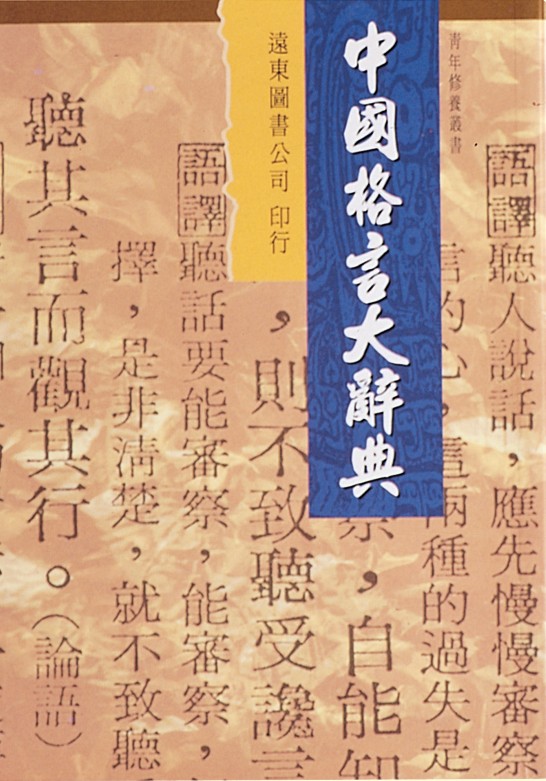 青年修養叢書
中國格言大辭典
遠東圖書公司 印行
語譯聽人說話，應先慢慢審察
言的心。這兩種的過失是
察，自能知
，則不致聽受讒言
語譯聽話要能審察，能審察，
擇，是非清楚，就不致聽
聽其言而觀其行。（論語）